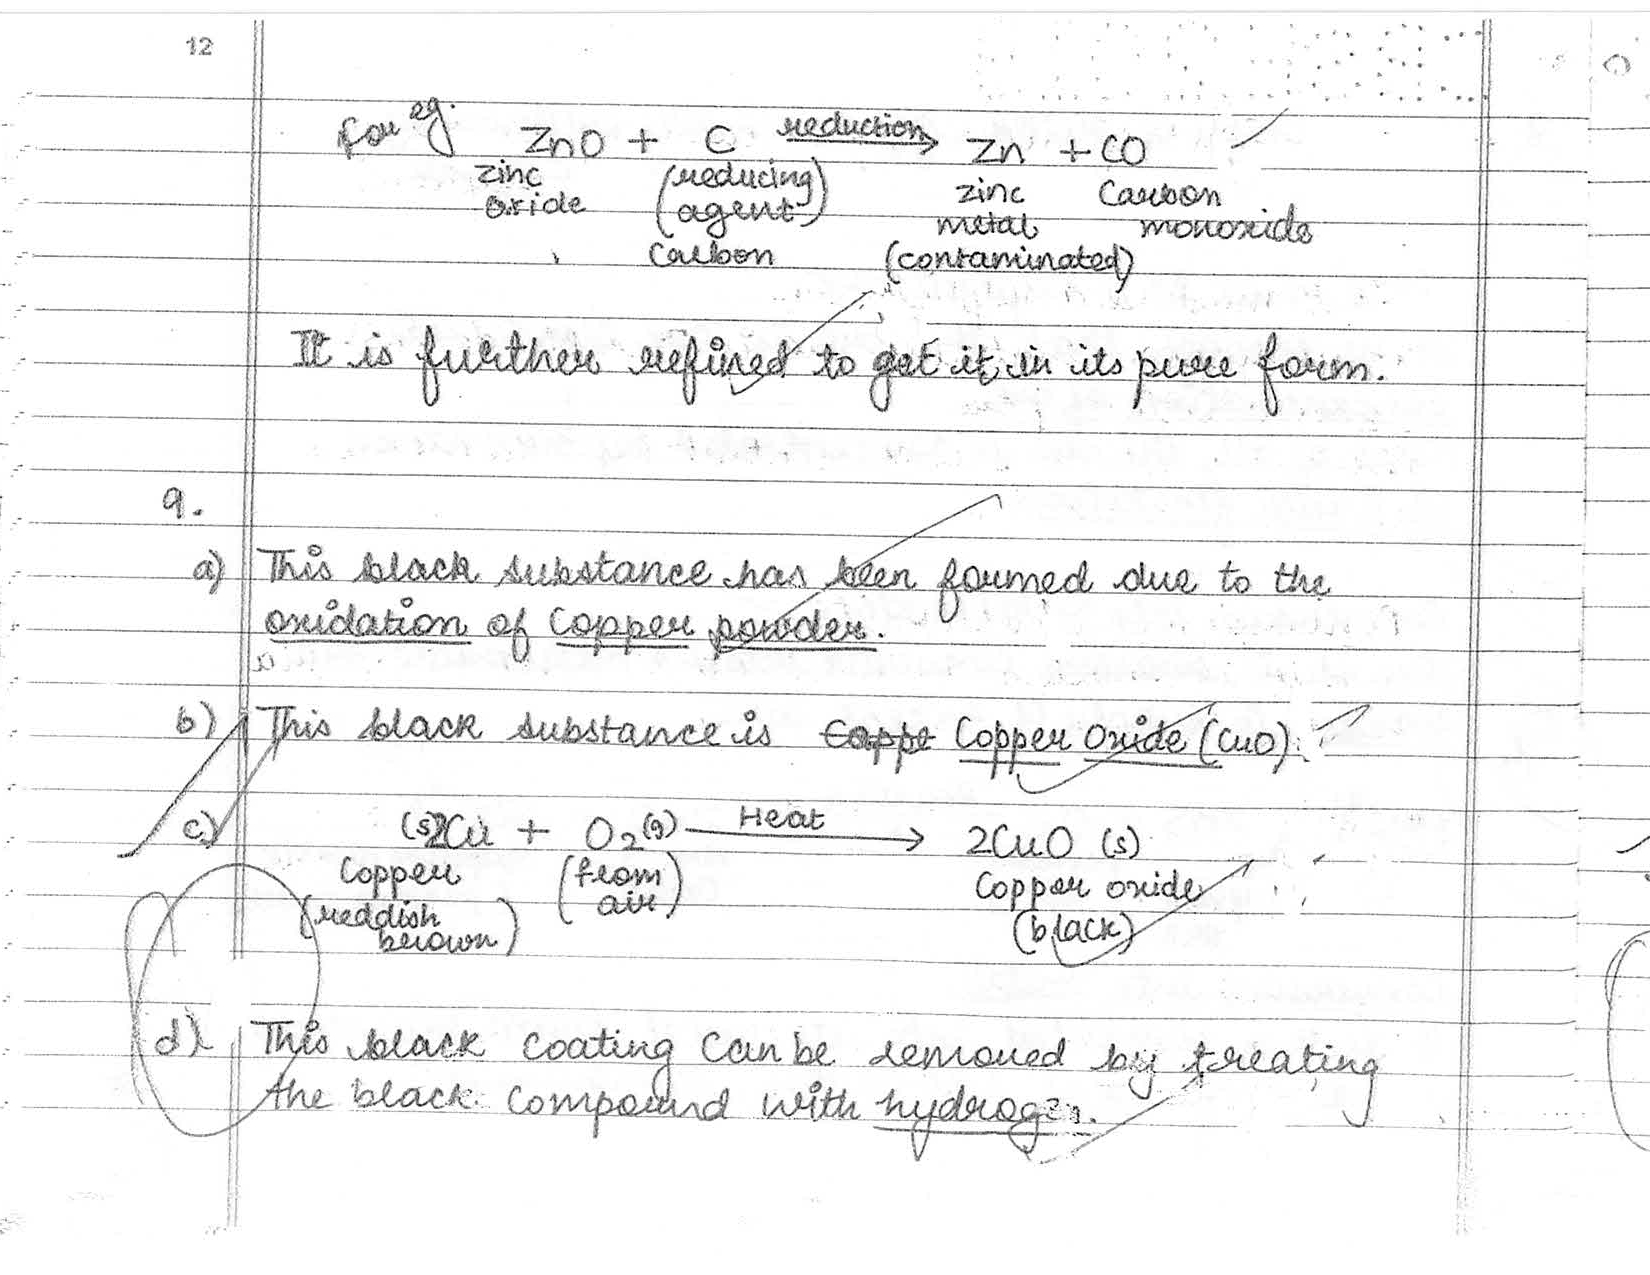 12
For eg. ZnO + C reduction→ Zn + CO
zinc (reducing zinc Carbon
oxide agent) metal monoxide
Carbon (contaminated)
It is further refined to get it in its pure form.
9.
a) This black substance has been formed due to the
oxidation of Copper powder.
b) This black substance is Coppe Copper Oxide (CuO).
c) (s)2Cu + O2(g) Heat→ 2CuO (s)
Copper (from Copper oxide
(reddish air) (black)
brown)
d) This black coating can be removed by treating
the black compound with hydrogen.